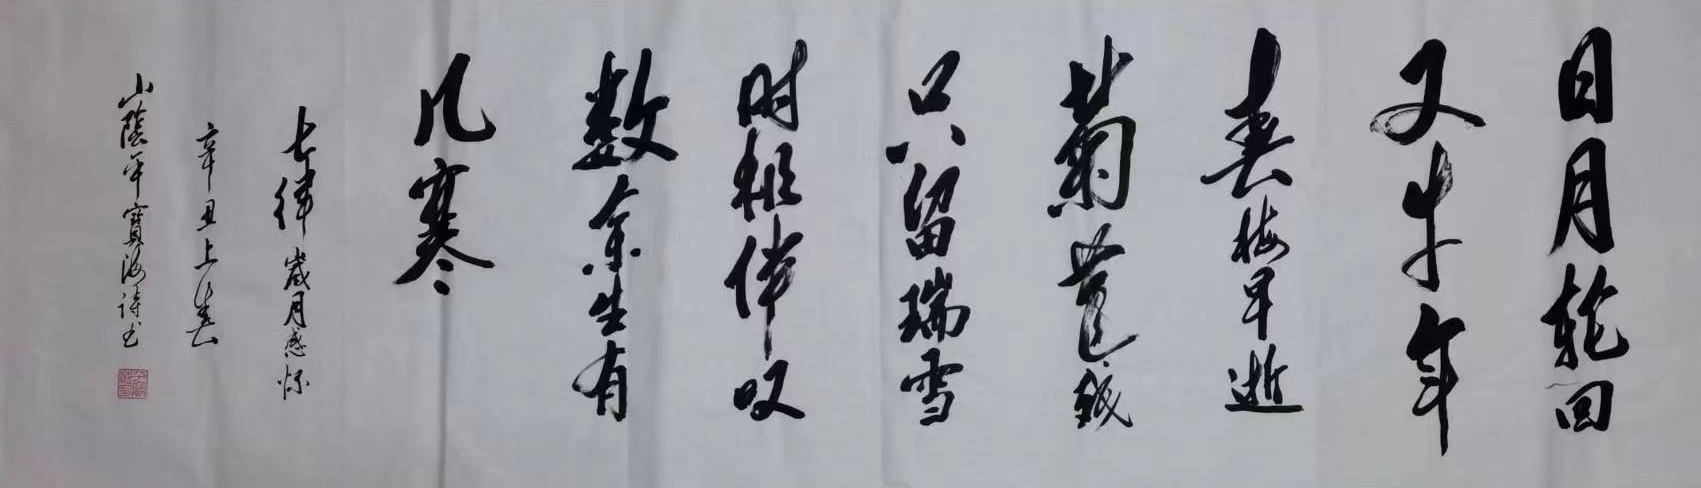 日月轮回
又牛年
春梅早逝
菊残
只留瑞雪
时相伴叹
数余生有
几寒
七律 歲月感怀
辛丑上春
山陰寶海诗书